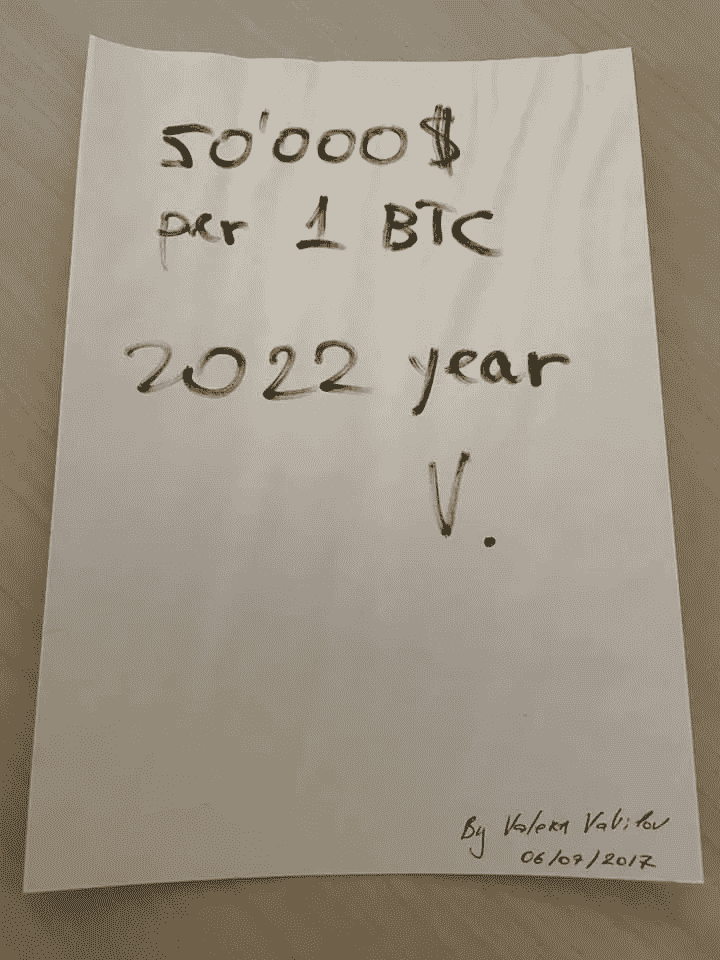 50'000$
per 1 BTC
2022 year
V.
By Valera Vavilov
06/07/2017